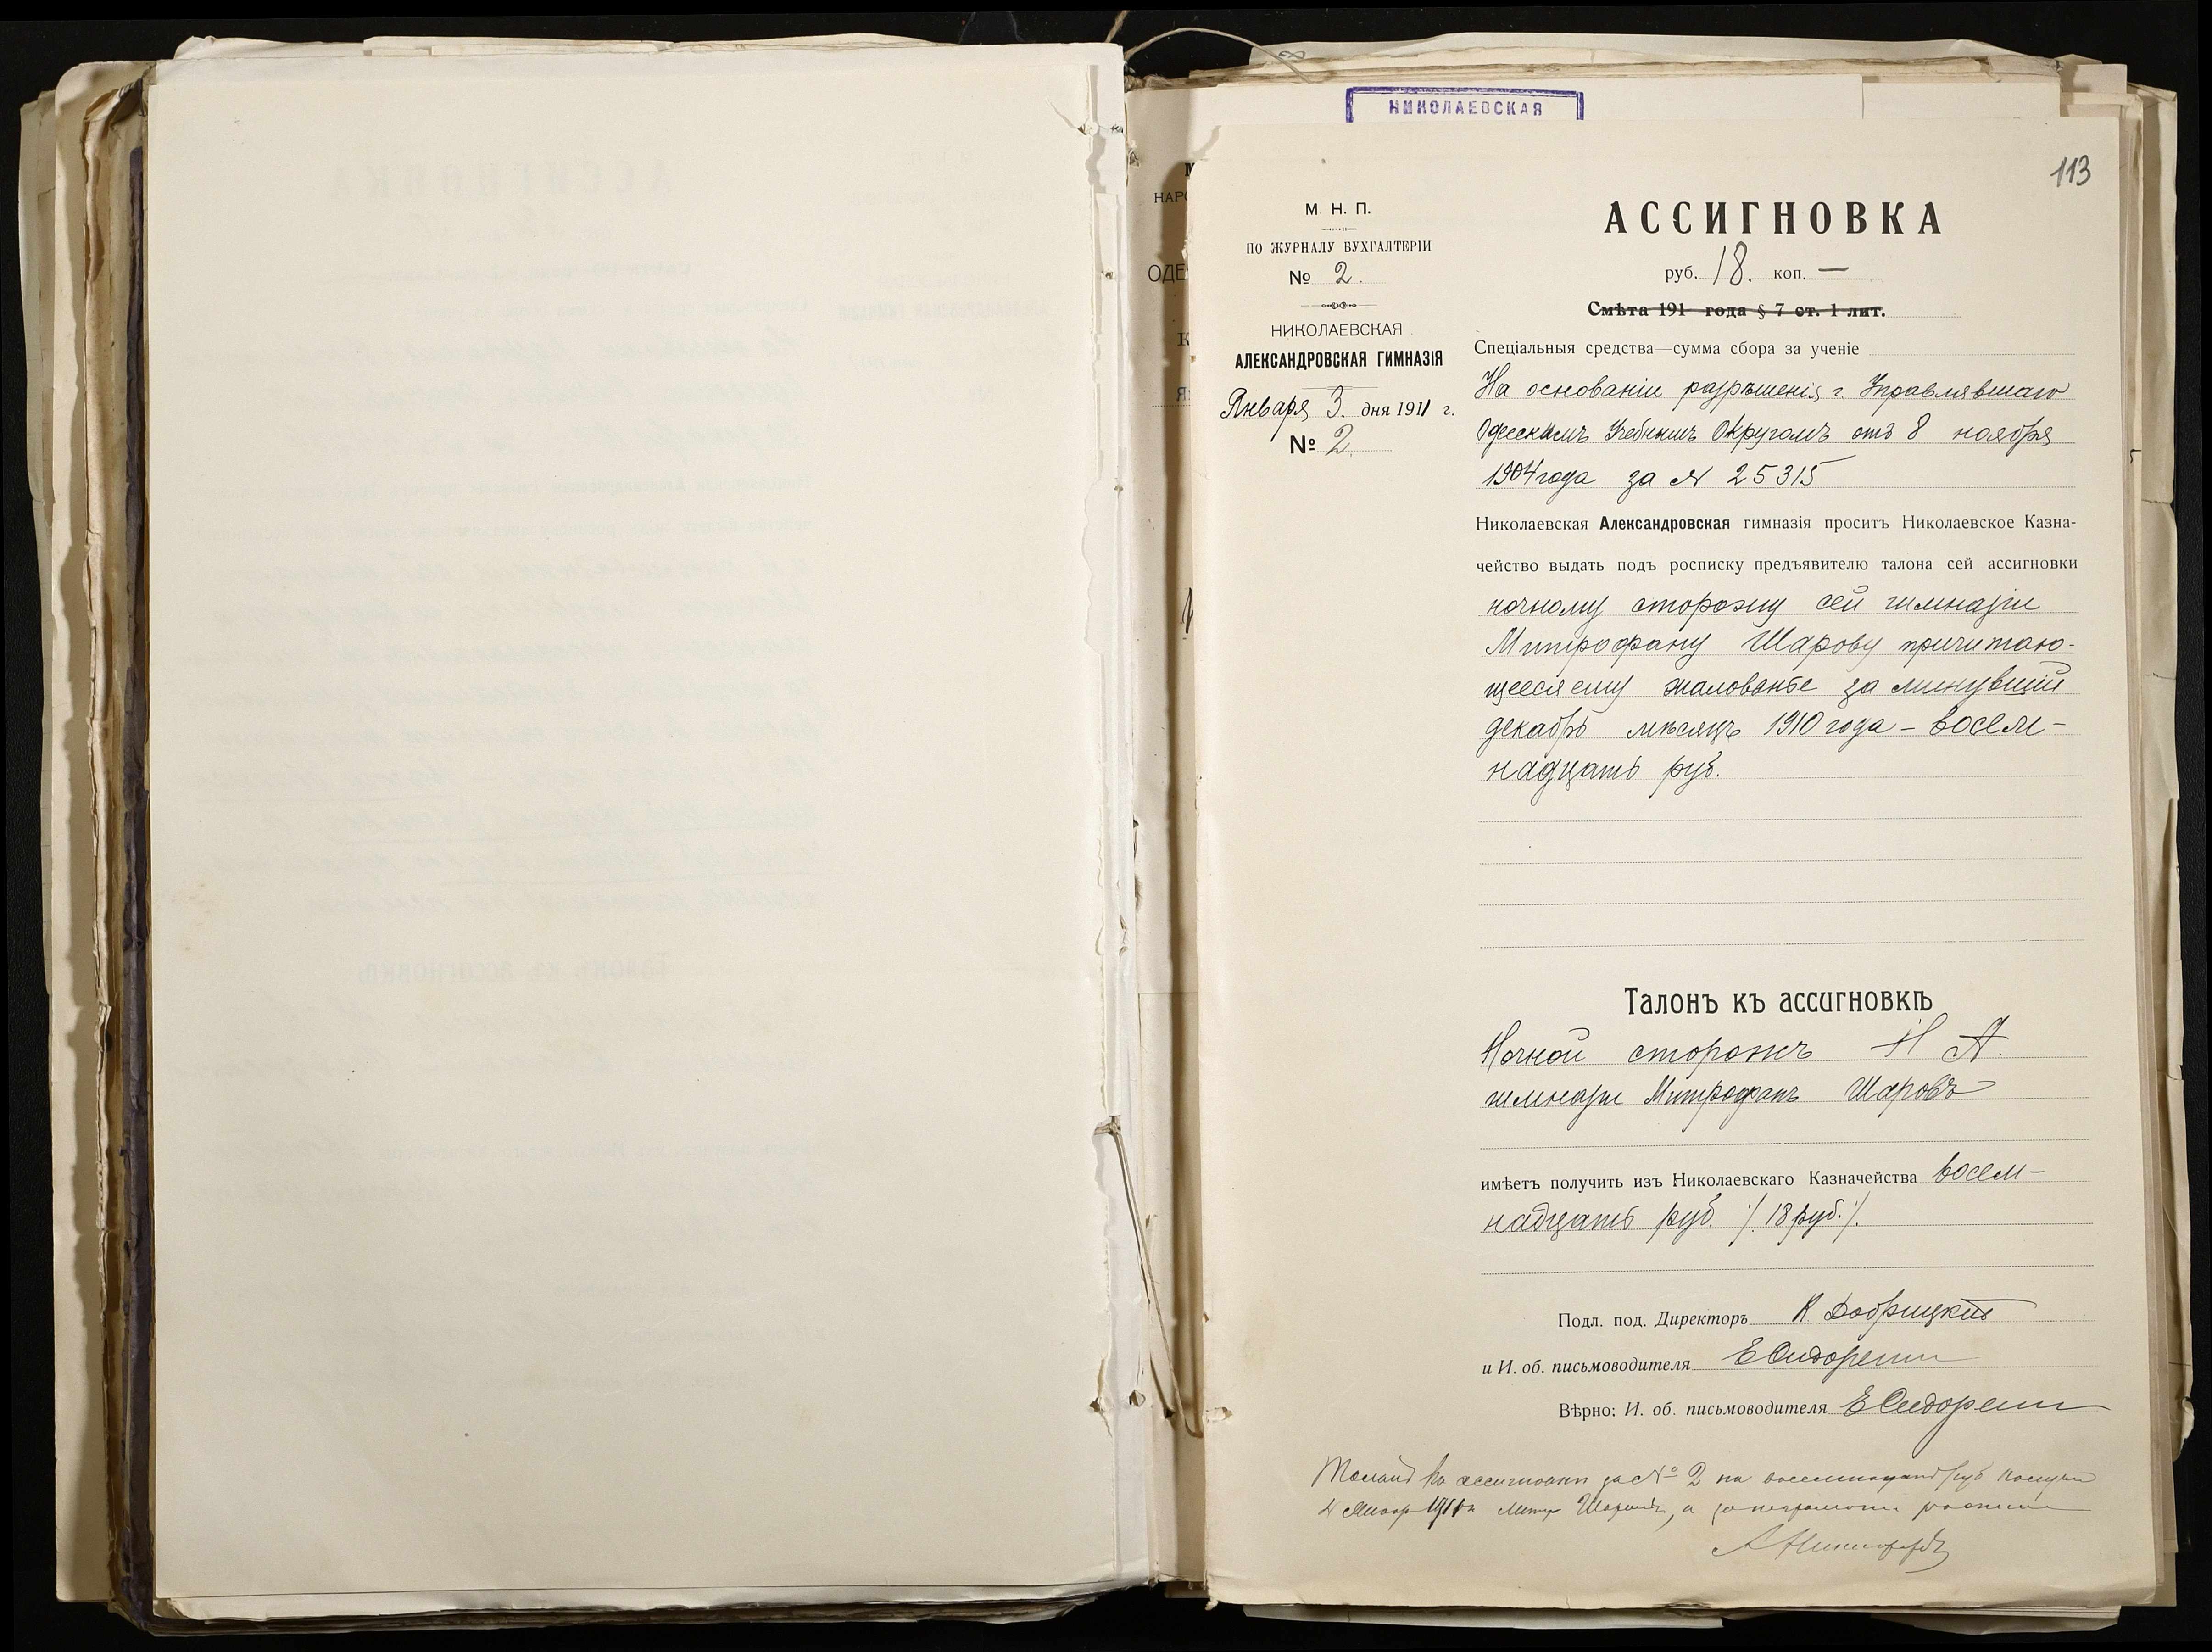 НИКОЛАЕВСКАЯ
113
М. Н. П.
ПО ЖУРНАЛУ БУХГАЛТЕРІИ
№ 2.
НИКОЛАЕВСКАЯ
АЛЕКСАНДРОВСКАЯ ГИМНАЗІЯ
Января 3. дня 1911 г.
№ 2.
АССИГНОВКА
руб. 18. коп. —
Смѣта 191 года § 7 ст. 1 лит.
Спеціальныя средства—сумма сбора за ученіе
На основаніи разрѣшенія г. Управлявшаго
Одесскимъ Учебнымъ Округомъ отъ 8 ноября
1904 года за № 25315
Николаевская Александровская гимназія проситъ Николаевское Казна-
чейство выдать подъ росписку предъявителю талона сей ассигновки
ночному сторожу сей гимназіи
Митрофану Шарову причитаю-
щееся ему жалованье за минувшій
декабрь мѣсяцъ 1910 года – восем-
надцать руб.
Талонъ къ ассигновкѣ
Ночной сторожъ Н. А.
гимназіи Митрофанъ Шаровъ
имѣетъ получить изъ Николаевскаго Казначейства восем-
надцать руб. /. 18 руб. /.
Подл. под. Директоръ К. Добрицкій
и И. об. письмоводителя Е Сидоренко
Вѣрно: И. об. письмоводителя Е Сидоренко
Талонъ къ ассигновкѣ за № 2 на восемнадцать руб получилъ
4 Января 1911 г. Митр Шаровъ, а
НАР
ОДЕ